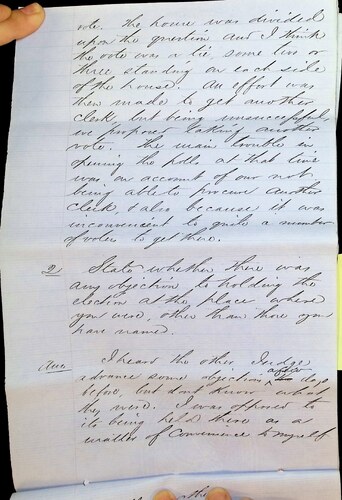 vote. The house was divided
upon the question and I think
the vote was a tie, some two or
three standing on each side
of the house. An effort was
then made to get another
clerk but being unsuccessful
we proposed taking another
vote. The main trouble in
opening the polls at that time
was on account of our not
being able to procure another
Clerk, & also because it was
inconvenient to quite a number
of voters to get there.
2 State whether there was
any objection to holding the
election at the place where
you were, other than those you
have named.
Ans I heard the other Judge
advance some objections a few days
before, but dont know what
they were. I was opposed to
its being held there as a
matter of Convenience to myself